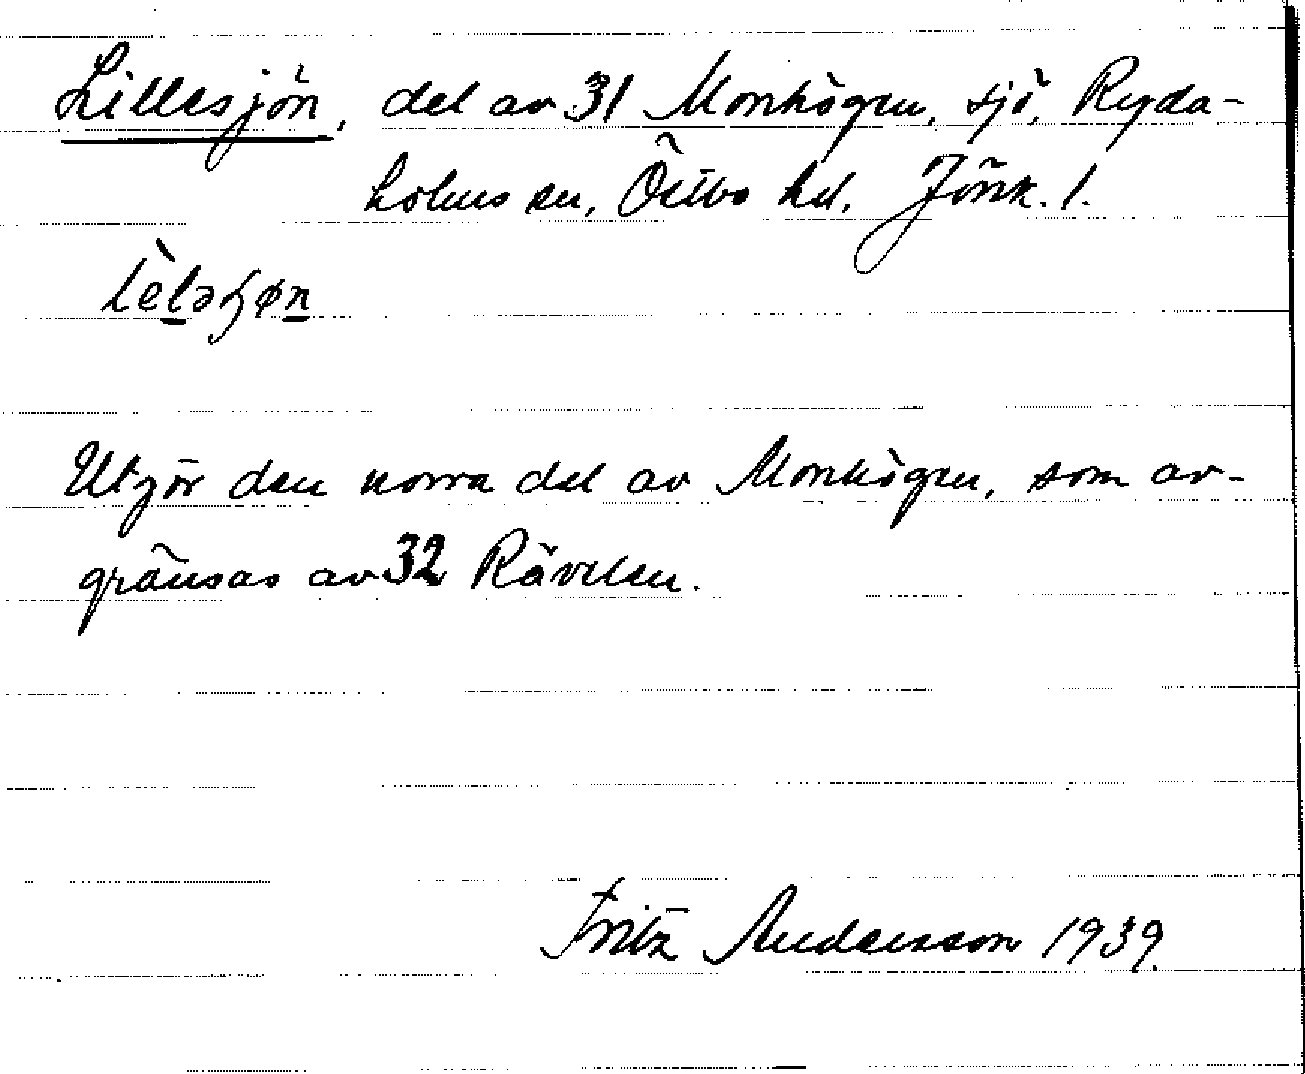 Lillesjön, del av 31 Monhögen, sjö, Ryda-
holms sn, Östbo hd. Jönk. l.
Utgör den norra del av Monhögen, som av-
gränsas av 32 Rävelsen.
Fritz Andersson 1939.